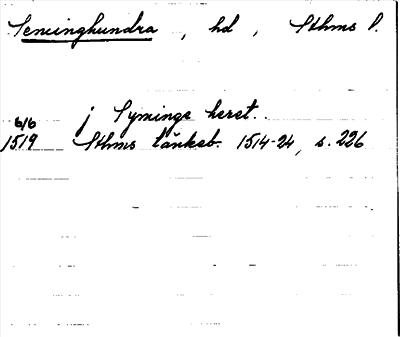 Seminghundra, hd, Sthms l.
j Symings heret.
6/6
1519 Sthms tänkeb. 1514-24, s. 226